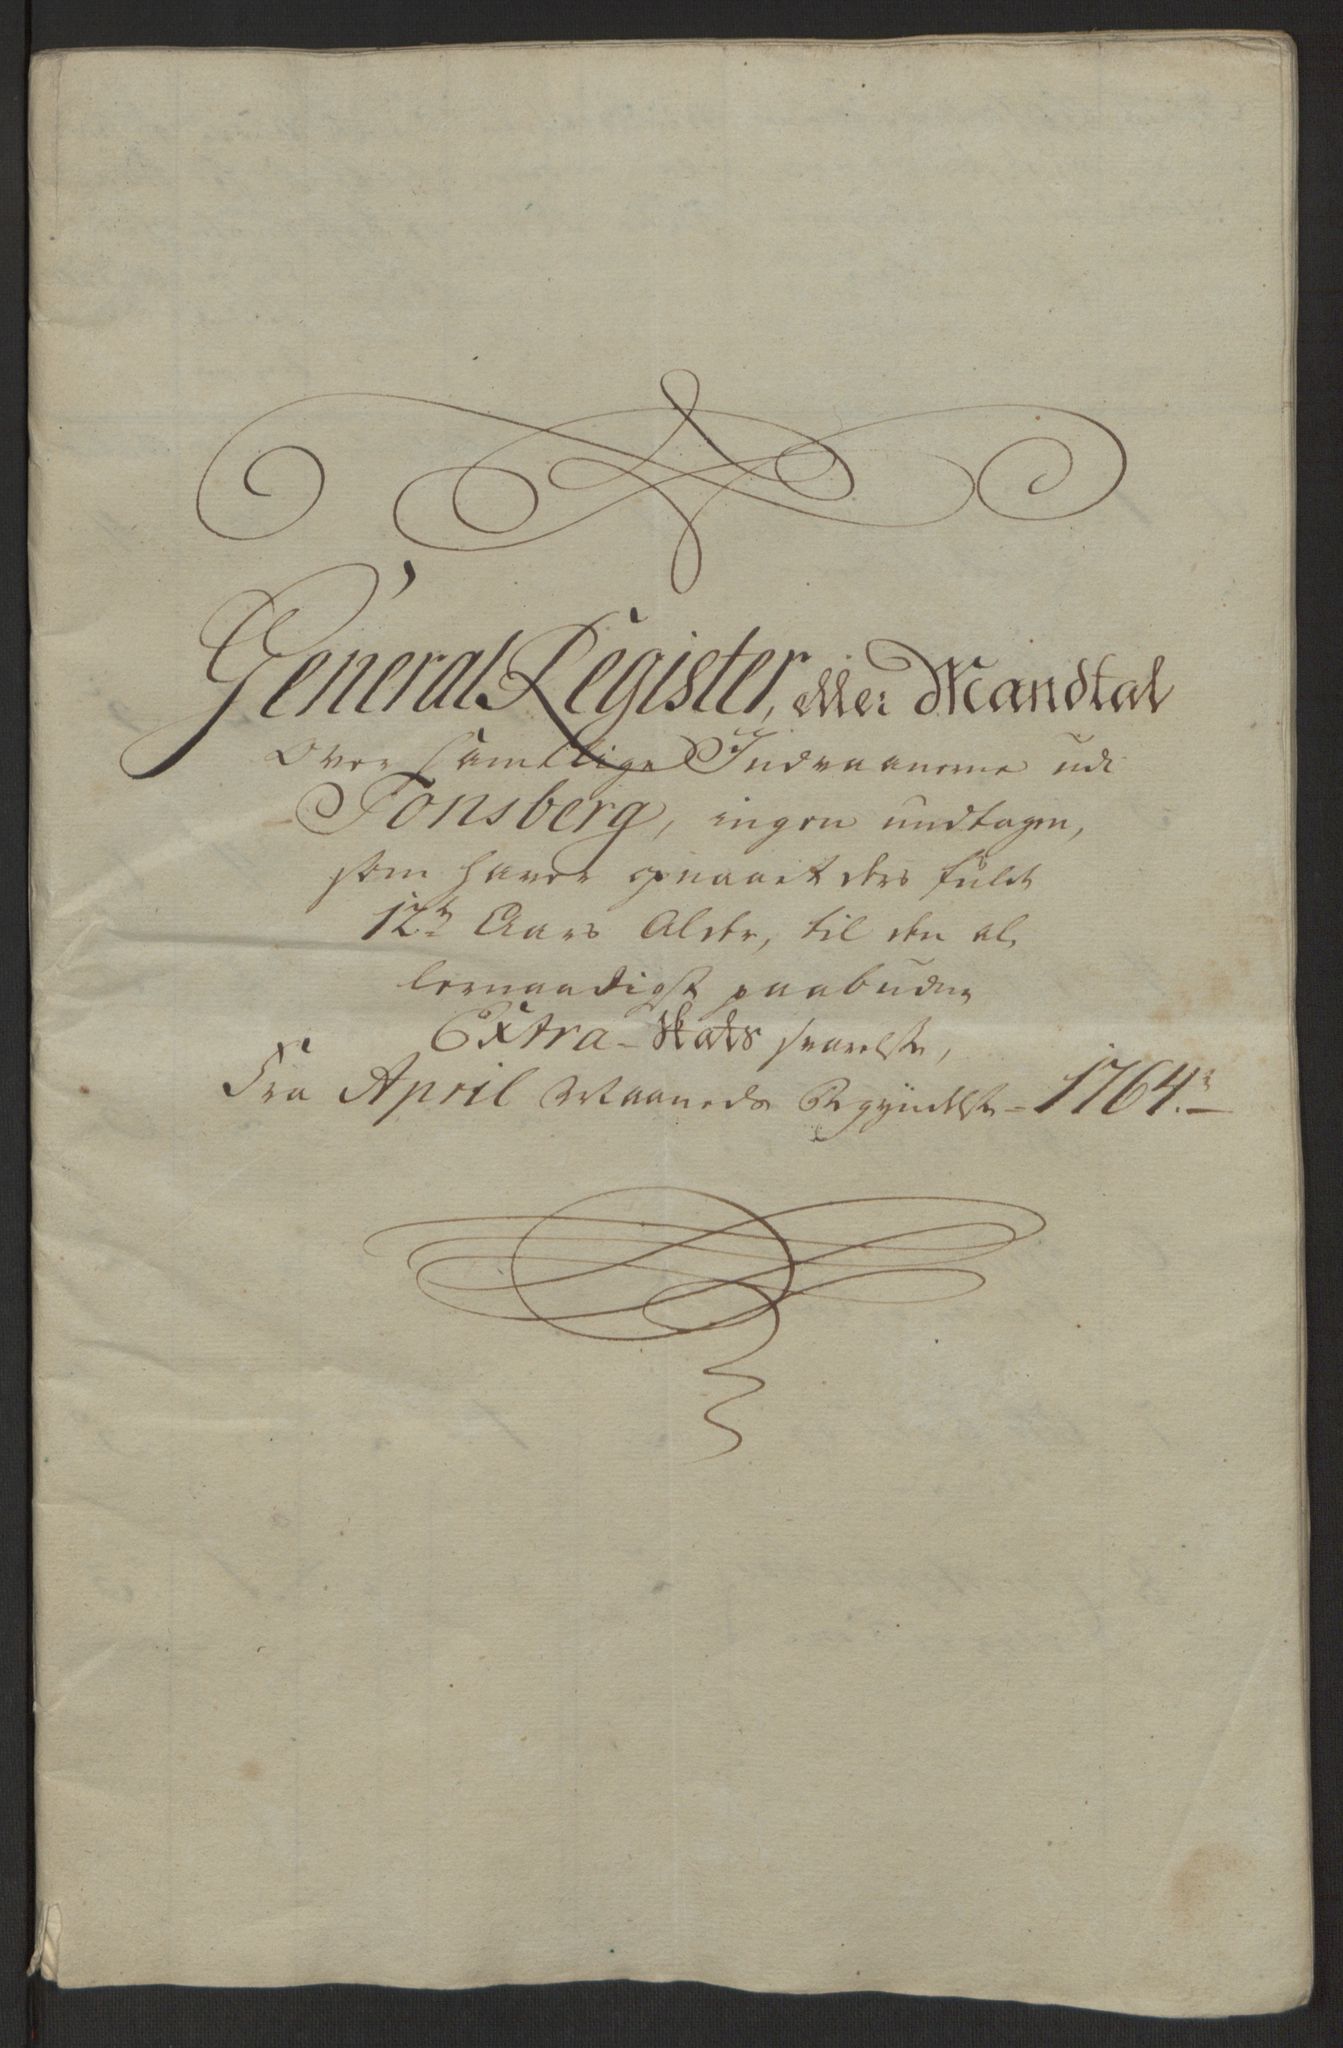 General Register, eller Mandtal
Over samtlige Indvaanerne udi
Tonsberg, ingen undtagen,
som haver opnaaet deres fulde
12te Aars Alder, til den al,
lernaadigst paabudne
Extra-Skats svarelse,
Fra April Maaneds Begyndelse - 1764.